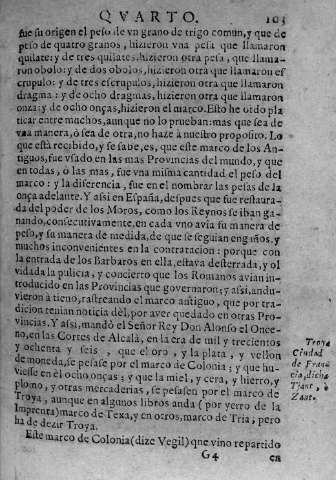 QVARTO. 103
fue su origen el peso de vn grano de trigo comun, y que de
peso de quatro granos, hizieron vna pesa que llamaron
quilate: y de tres quilates, hizieron otra pesa, que llama-
ron obolo: y de dos obolos, hizieron otra que llamaron es
crupulo: y de tres escrupulos, hizieron otra que llamaron
dragma: y de ocho dragmas, hizieron otra que llamaron
onza: y de ocho onças, hizieron el marco. Esto he oido pla
ticar entre muchos, aunque no lo prueban: mas que sea de
vna manera, ò sea de otra, no haze à nuestro proposito. Lo
que està recibido, y se sabe, es, que este marco de los An-
tiguos, fue vsado en las mas Provincias del mundo, y que
en todas, ò las mas, fue vna misma cantidad el peso del
marco: y la diferencia, fue en el nombrar las pesas de la
onça adelante. Y assi en España, despues que fue restaura-
da del poder de los Moros, como los Reynos se iban ga-
nando, consecutivamente, en cada vno avia su manera de
peso, y su manera de medida, de que se seguian engaños, y
muchos inconvenientes en la contratacion: porque con
la entrada de los Barbaros en ella, estava desterrada, y ol
vidada la pulicia, y concierto que los Romanos avian in-
troducido en las Provincias que governaron: y assi, andu-
vieron à tieno, rastreando el marco antiguo, que por tra-
dicion tenian noticia dèl, por aver quedado en otras Pro-
vincias. Y assi, mandò el Señor Rey Don Alonso el Once-
no, en las Cortes de Alcalà, en la era de mil y trecientos
y ochenta y seis, que el oro, y la plata, y vellon
de moneda, se pesasse por el marco de Colonia; y que hu-
viesse en èl ocho onças; y que la miel, y cera, y hierro, y
plomo, y otras mercaderias, se pesassen por el marco de
Troya, aunque en algunos libros anda (por yerro de la
Imprenta) marco de Texa, y en otros, marco de Tria, pero
ha de dezir Troya.
Este marco de Colonia (dize Vegil) que vino repartido
G4 en
Troya
Ciudad
de Fran
cia, dicha